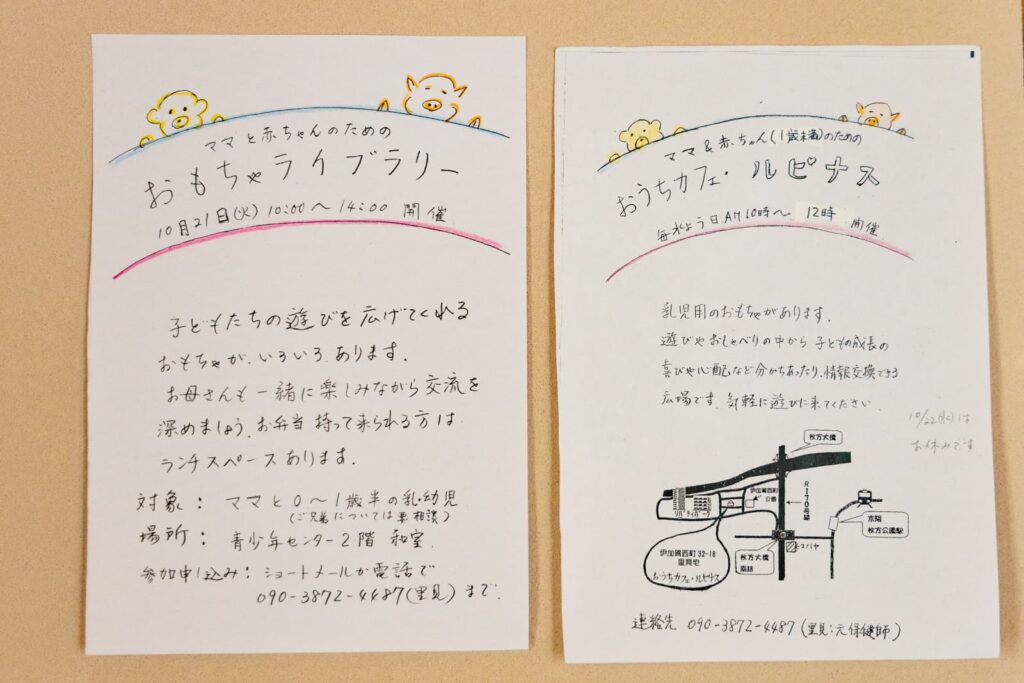 ママと赤ちゃんのための
おもちゃライブラリー
10月21日(火) 10:00〜14:00 開催
子どもたちの遊びを広げてくれる
おもちゃが、いろいろあります。
お母さんも一緒に楽しみながら交流を
深めましょう。お弁当持って来られる方は
ランチスペースあります。
対象： ママと0〜1歳半の乳・幼児
(ご兄弟については要相談)
場所： 青少年センター2階 和室
参加申し込み： ショートメールか電話で
090-3872-4487(里見)まで。
ママ&赤ちゃん(1歳未満)のための
おうちカフェ・ルピナス
毎水よう日AM10時〜 12時 開催
乳児用のおもちゃがあります。
遊びやおしゃべりの中から子どもの成長の
喜びや心配など分かちあったり、情報交換できる
広場です。気軽に遊びに来てください。
10/22(水)は
お休みです
枚方大橋
伊加賀西町
公園
R170号線
リバティパーク
京阪
枚方公園駅
枚方大橋
南詰
伊加賀西町32-18
里見宅
おうちカフェ・ルピナス
連絡先 090-3872-4487 (里見:元保健師)